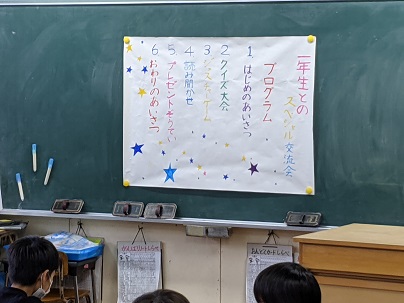 一年生との
スペシャル交流会
プログラム
1 はじめのあいさつ
2 クイズ大会
3 ジェスチャーゲーム
4 読み聞かせ
5 プレゼントそうてい
6 おわりのあいさつ